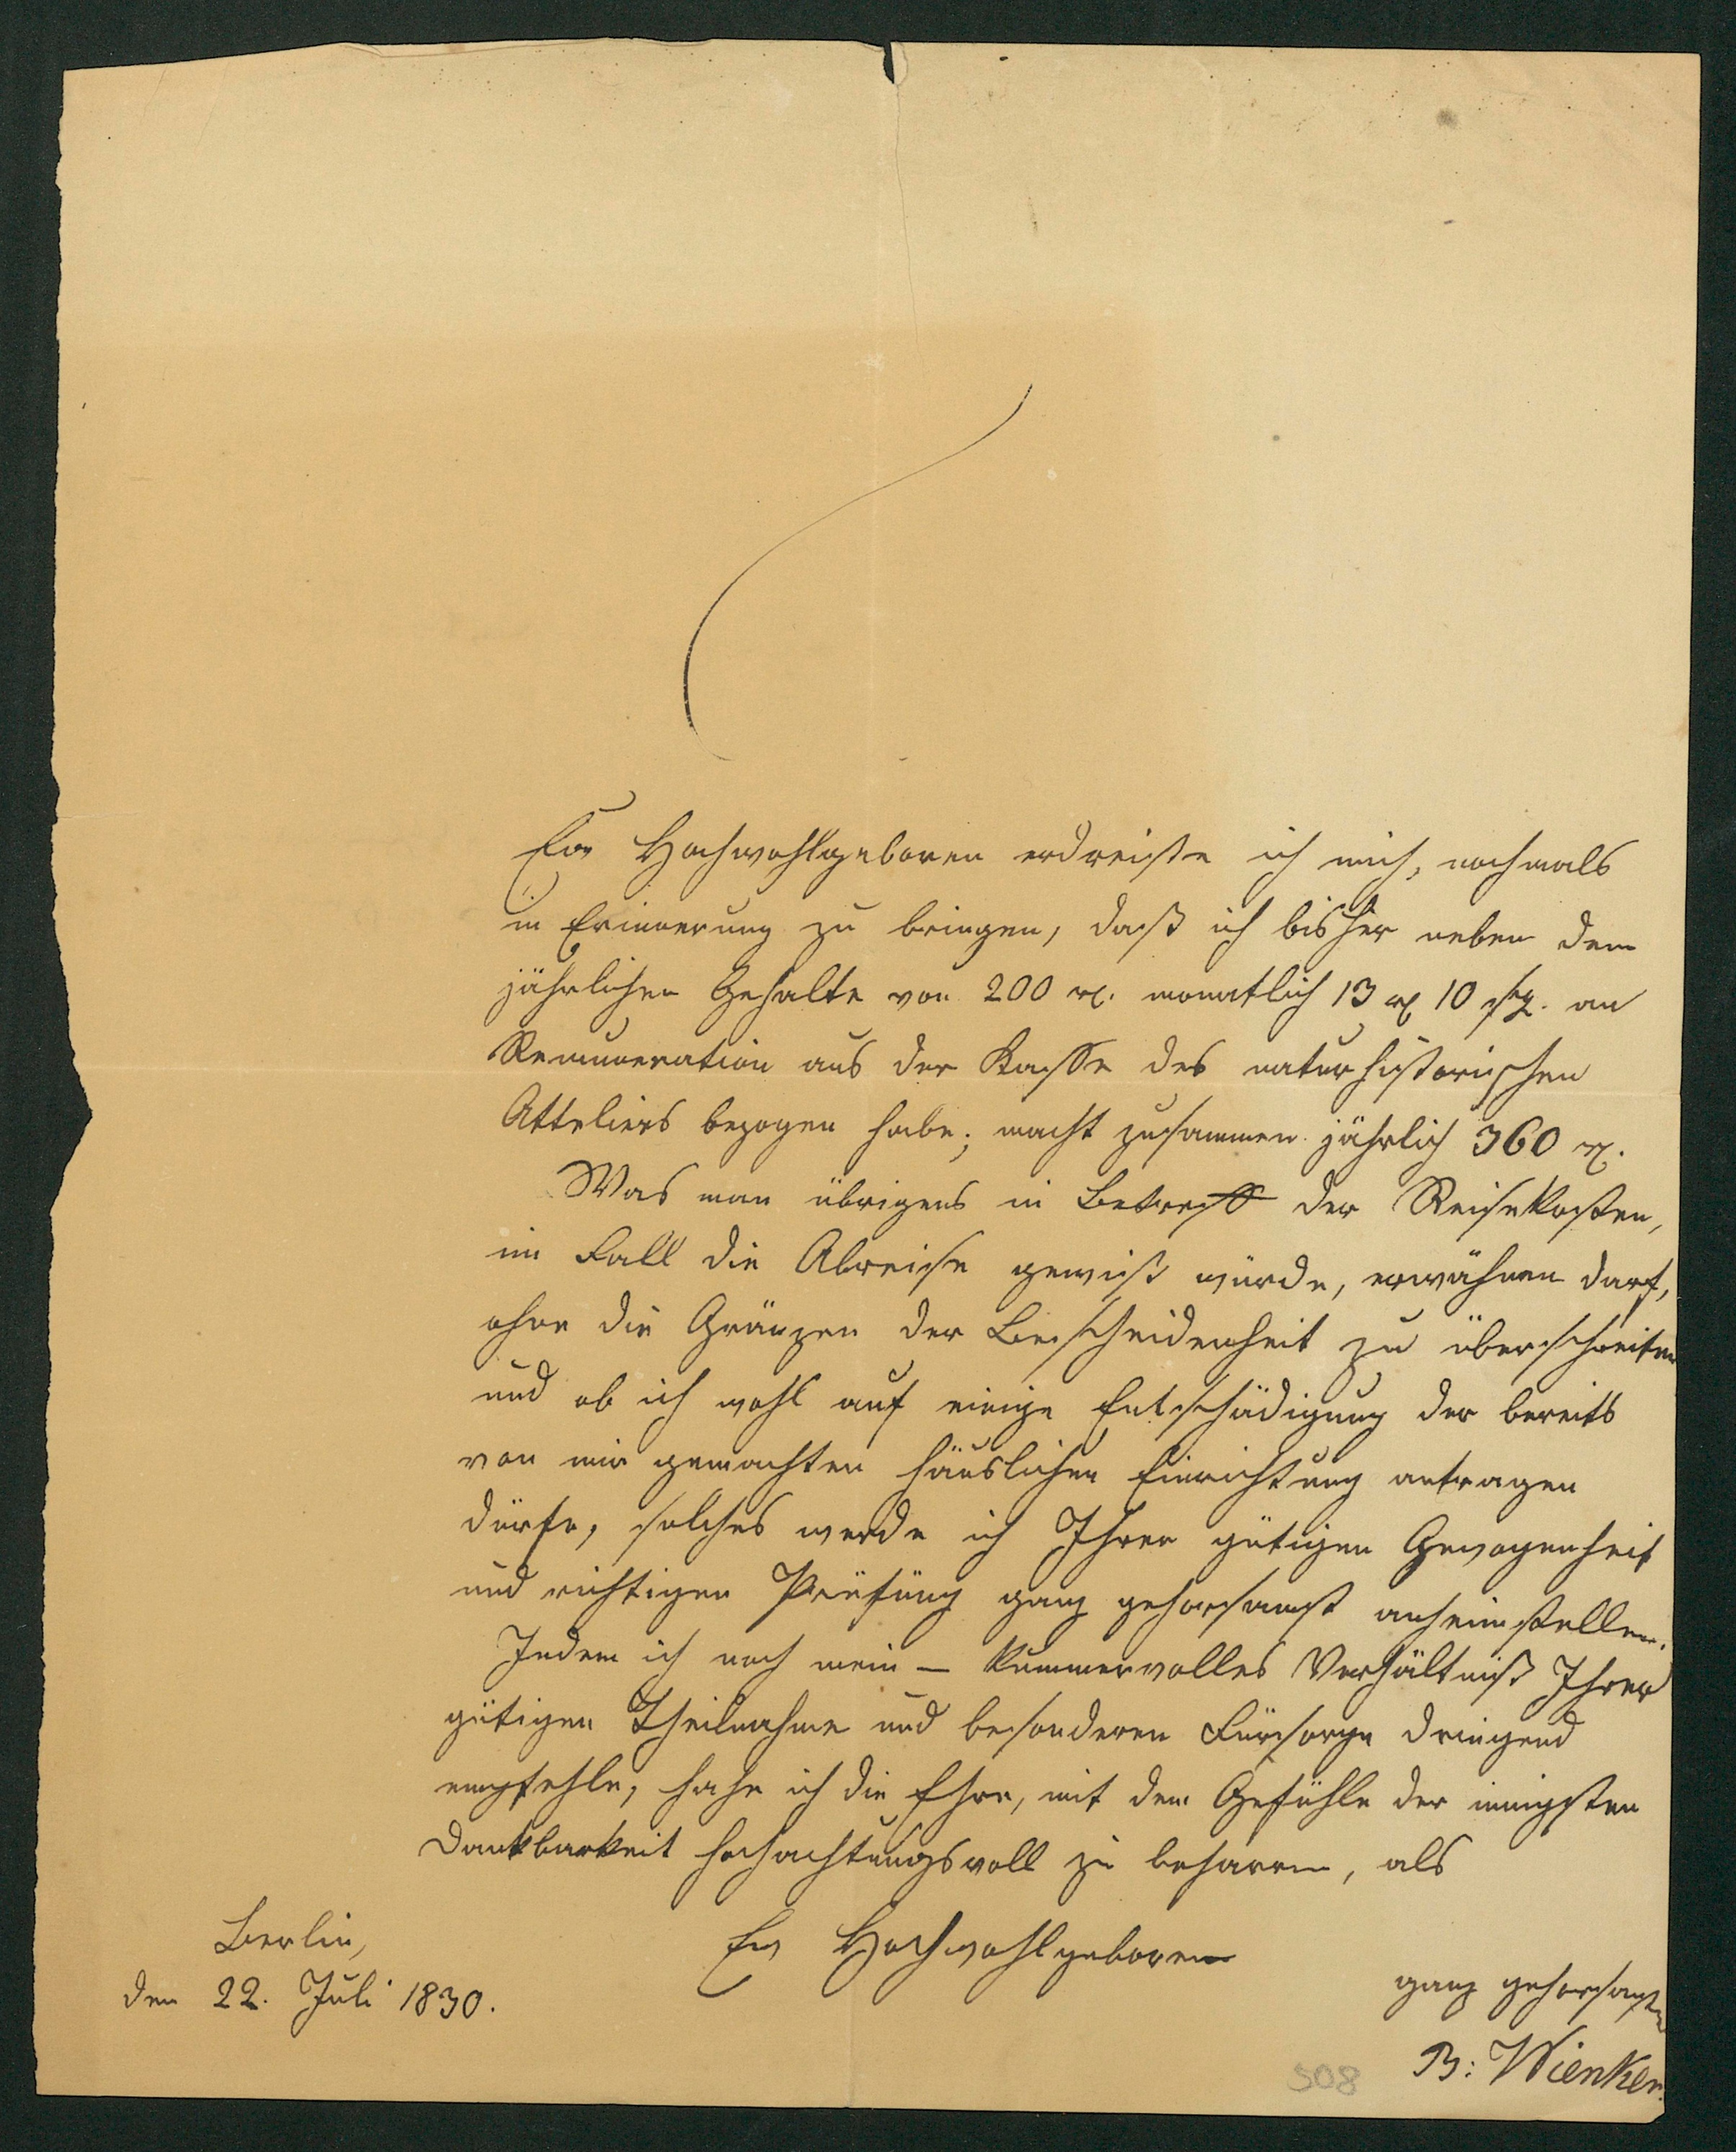 Ew Hochwohlgeboren erdreiste ich mich, nochmals
in Erinnerung zu bringen, daß ich bisher neben dem
jährlichen Gehalte von 200 rℓ. monatlich 13 rℓ 10 sg. an
Remuneration aus der Kasse des naturhistorischen
Atteliers bezogen habe; macht zusammen jährlich 360 rℓ.
Was man übrigens in Betreff der Reisekosten,
im Fall die Abreise gewiß würde, erwähnen darf,
ohne die Gränzen der Bescheidenheit zu überschreiten
und ob ich wohl auf einige Entschädigung der bereits
von mir gemachten häuslichen Einrichtung antragen
dürfe, solches werde ich Ihrer gütigen Gewogenheit
und richtigen Prüfung ganz gehorsamst anheimstellen.
Indem ich noch mein – kummervolles Verhältniß Ihrer
gütigen Theilnahme und besonderen Fürsorge dringend
empfehle, habe ich die Ehre, mit dem Gefühle der innigsten
Dankbarkeit hochachtungsvoll zu beharren, als
Ew Hochwohlgeboren
Berlin,
den 22. Juli 1830.
ganz gehorsamster
B: Wienker.
508